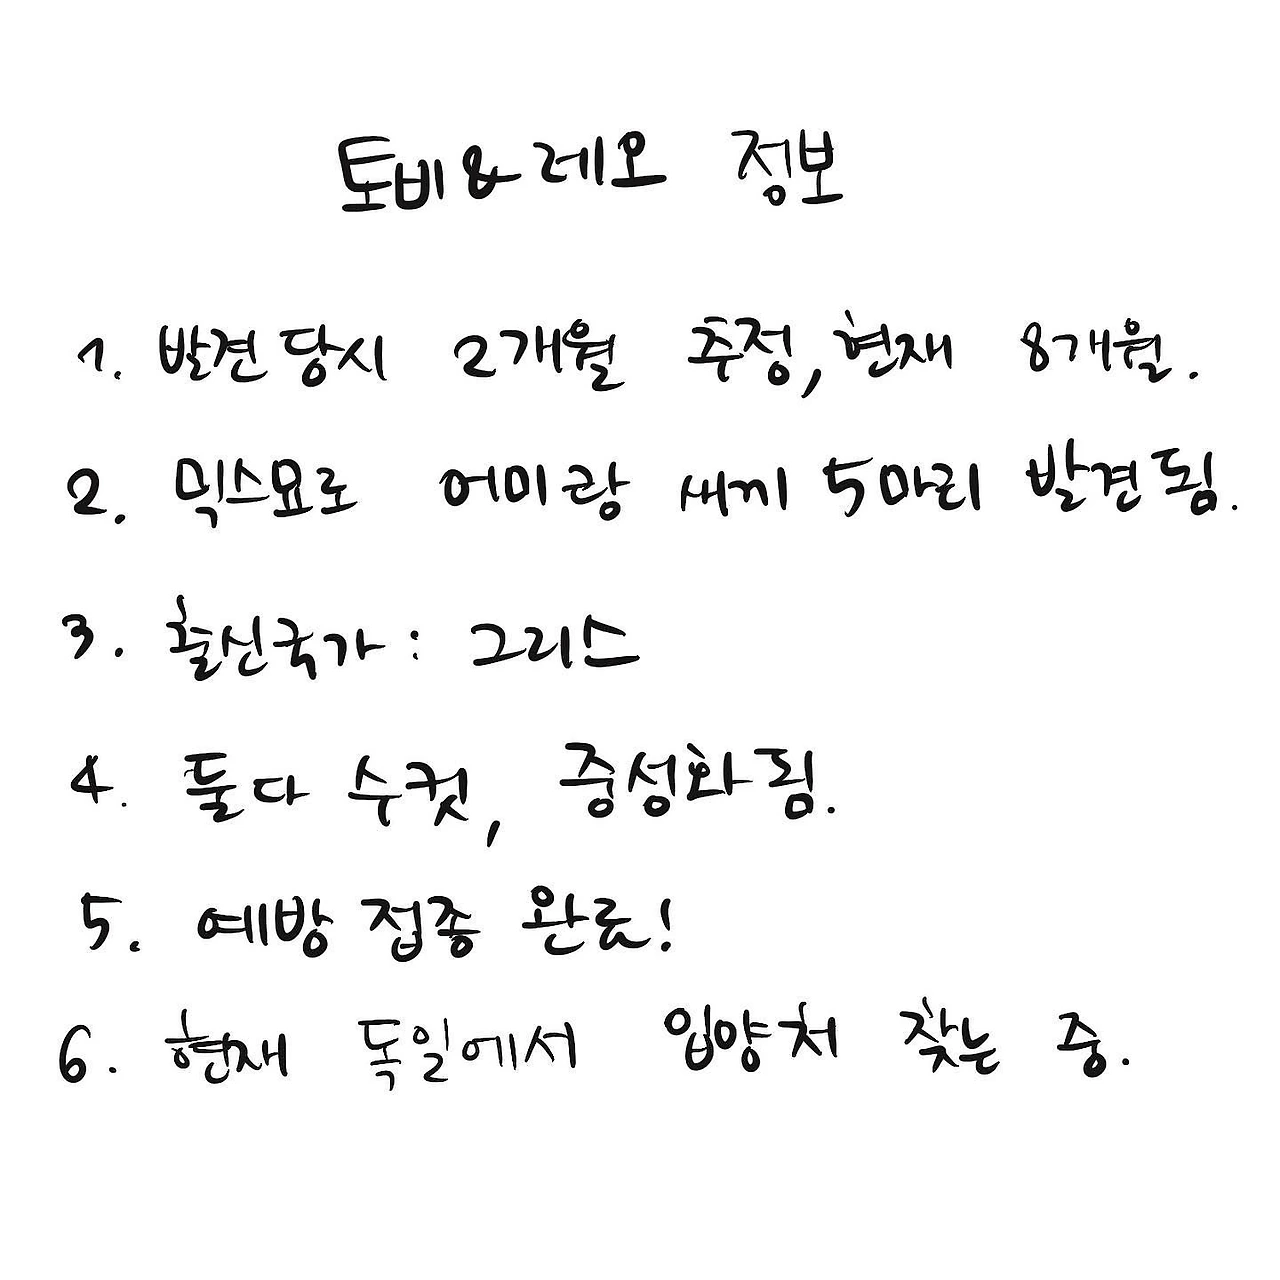 토비&레오 정보
1. 발견 당시 2개월 추정, 현재 8개월.
2. 믹스묘로 어미랑 새끼 5마리 발견됨.
3. 출신국가 : 그리스
4. 둘다 수컷, 중성화됨.
5. 예방 접종 완료!
6. 현재 독일에서 입양처 찾는 중.